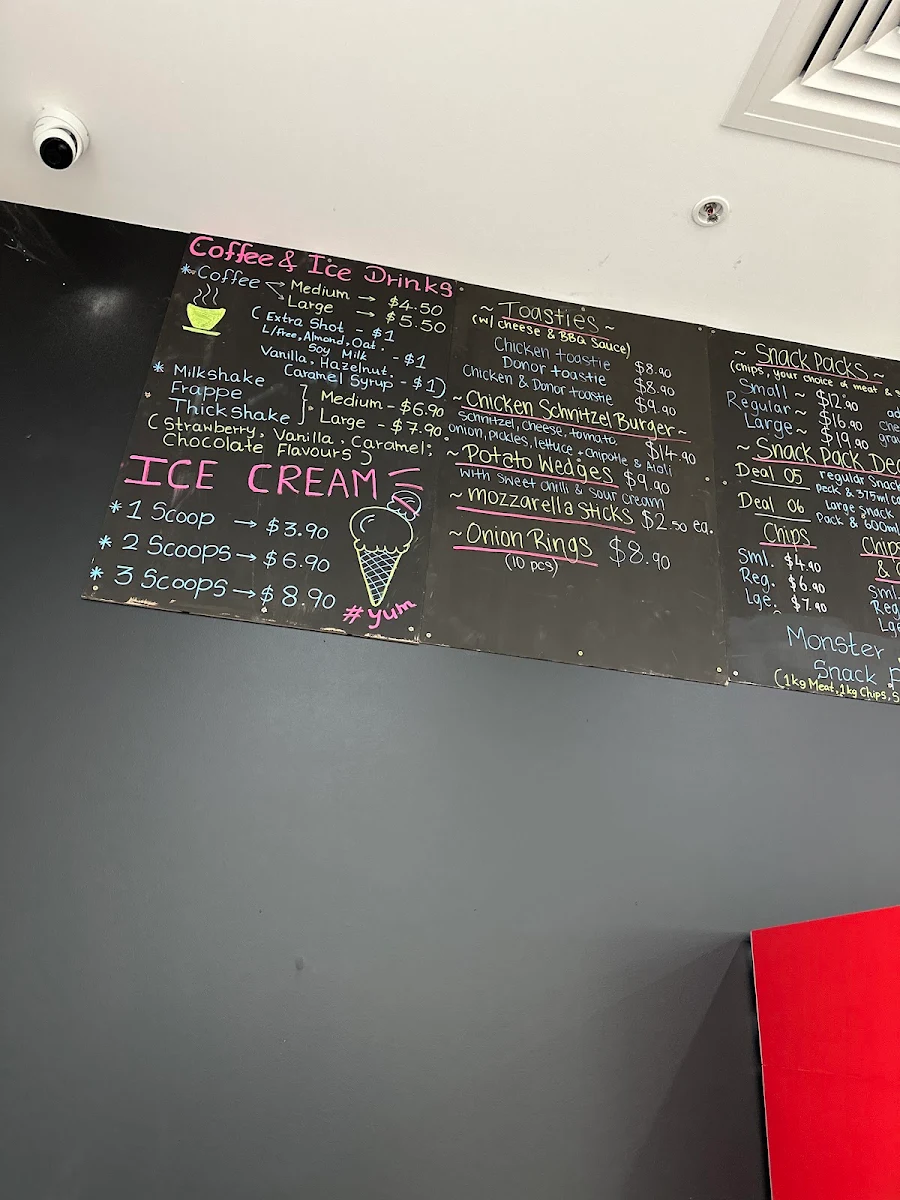 Coffee & Ice Drinks
* Coffee Medium → $4.50
Large → $5.50
(Extra Shot - $1
L/free, Almond, Oat,
Soy Milk - $1
Vanilla, Hazelnut,
Caramel Syrup - $1)
* Milkshake
Frappe
Thickshake
Medium - $6.90
Large - $7.90
(Strawberry, Vanilla, Caramel,
Chocolate Flavours)
ICE CREAM
* 1 Scoop → $3.90
* 2 Scoops → $6.90
* 3 Scoops → $8.90
#yum
~ Toasties ~
(w/ cheese & BBQ Sauce)
Chicken toastie $8.90
Donor toastie $8.90
Chicken & Donor toastie $9.90
~ Chicken Schnitzel Burger ~
schnitzel, cheese, tomato,
onion, pickles, lettuce + Chipotle & Aioli
$14.90
~ Potato Wedges $9.90
with sweet chilli & sour cream
~ mozzarella sticks $2.50 ea.
~ Onion Rings $8.90
(10 pcs)
~ Snack Packs ~
(chips, your choice of meat &
Small ~ $12.90
Regular ~ $16.90
Large ~ $19.90
~ Snack Pack
Deal 05 regular Snack
pack & 375ml
Deal 06 Large snack
Pack & 600ml
Chips
Sml. $4.90
Reg. $6.90
Lge. $7.90
Chips
&
Sml.
Reg
Lg
Monster
Snack
(1kg Meat, 1kg Chips,